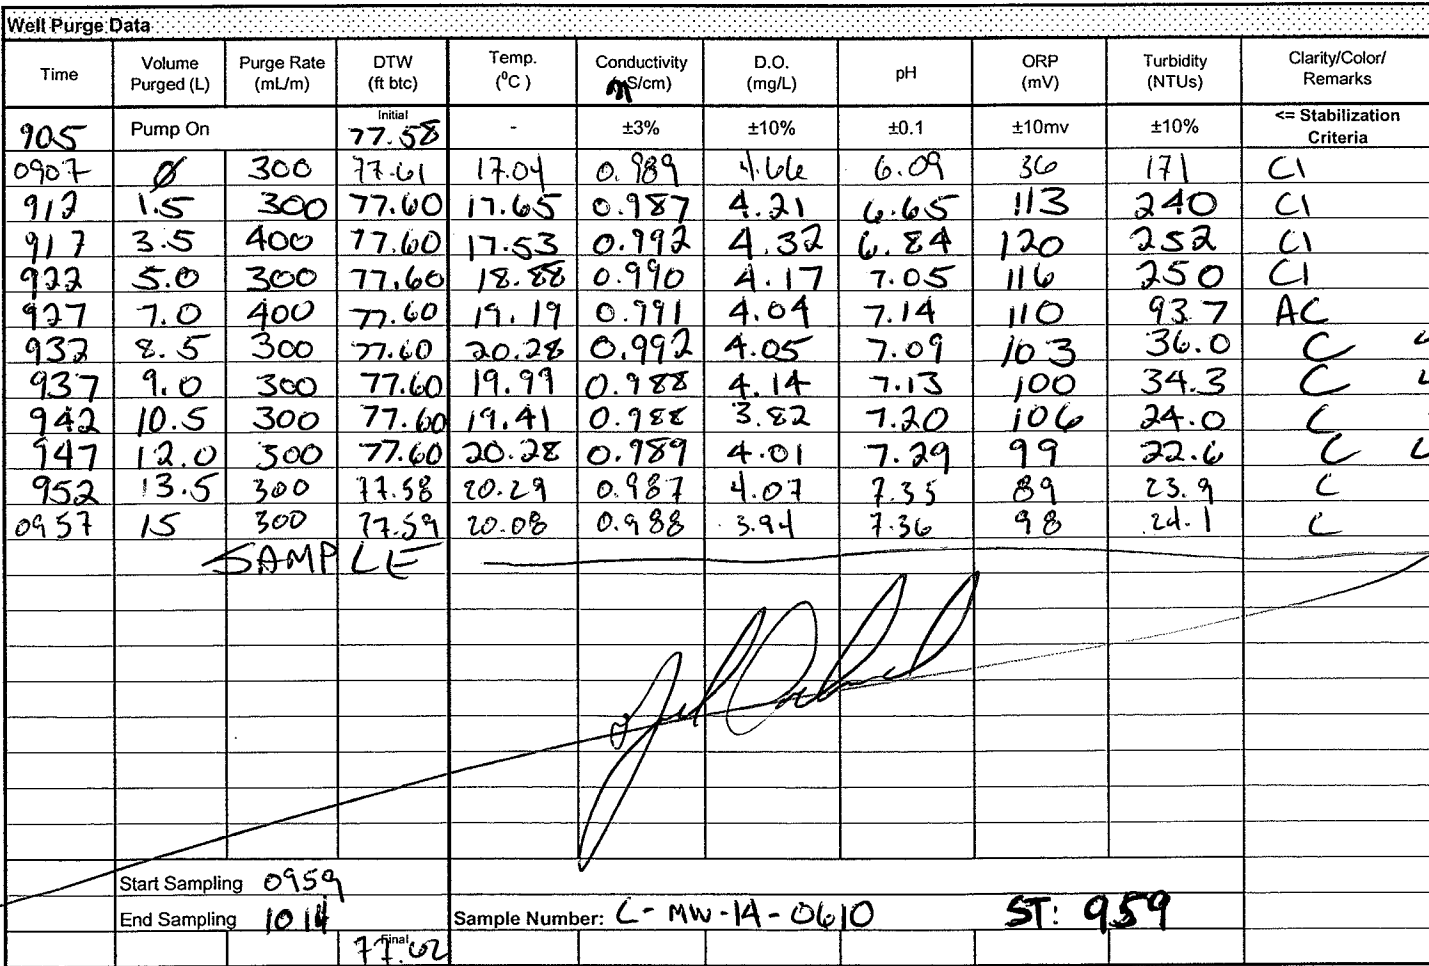 Well Purge Data
Time Volume Purged (L) Purge Rate (mL/m) DTW (ft btc) Temp. (⁰C ) Conductivity (mS/cm) D.O. (mg/L) pH ORP (mV) Turbidity (NTUs) Clarity/Color/ Remarks
905 Pump On Initial 77.58 - ±3% ±10% ±0.1 ±10mv ±10% <= Stabilization Criteria
0907 Ø 300 77.61 17.04 0.989 4.66 6.09 36 171 Cl
912 1.5 300 77.60 17.65 0.987 4.21 6.65 113 240 Cl
917 3.5 400 77.60 17.53 0.992 4.32 6.84 120 252 Cl
922 5.0 300 77.60 18.88 0.990 4.17 7.05 116 250 Cl
927 7.0 400 77.60 19.19 0.991 4.04 7.14 110 93.7 AC
932 8.5 300 77.60 20.28 0.992 4.05 7.09 103 36.0 C
937 9.0 300 77.60 19.99 0.988 4.14 7.13 100 34.3 C
942 10.5 300 77.60 19.41 0.988 3.82 7.20 106 24.0 C
947 12.0 300 77.60 20.28 0.989 4.01 7.29 99 22.6 C
952 13.5 300 77.58 20.29 0.987 4.07 7.35 89 23.9 C
0957 15 300 77.59 20.08 0.988 3.94 7.36 98 24.1 C
SAMPLE
Start Sampling 0959
End Sampling 1014 Sample Number: C-MW-14-0610 ST: 959
Final 77.62